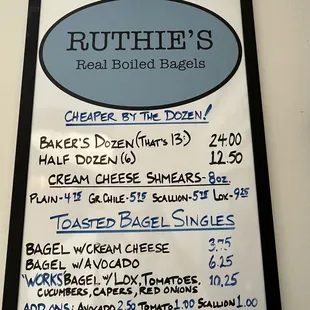 RUTHIE'S
Real Boiled Bagels
CHEAPER BY THE DOZEN!
BAKER'S DOZEN (THAT'S 13!) 24.00
HALF DOZEN (6) 12.50
CREAM CHEESE SHMEARS - 8oz.
PLAIN - 4.75 GR. CHILE - 5.75 SCALLION - 5.75 LOX - 9.25
TOASTED BAGEL SINGLES
BAGEL W/ CREAM CHEESE 3.75
BAGEL W/ AVOCADO 6.25
"WORKS" BAGEL W/ LOX, TOMATOES, 10.25
CUCUMBERS, CAPERS, RED ONIONS
ADD ONS: AVOCADO 2.50 TOMATO 1.00 SCALLION 1.00